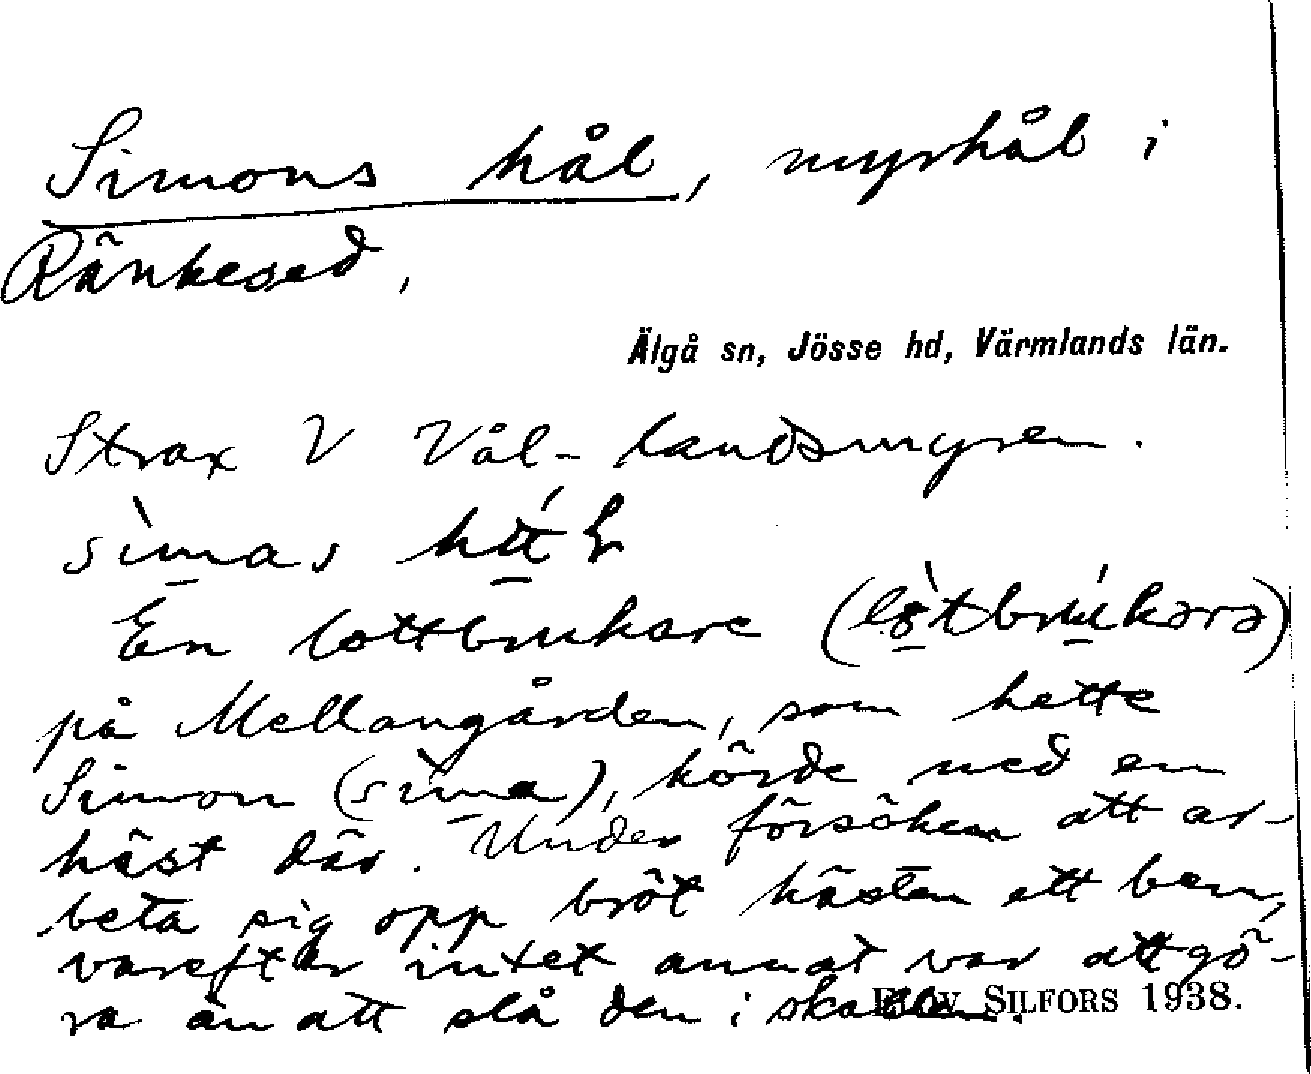 Simons hål, myrhål i
Ränkesed,
Älgå sn, Jösse hd, Värmlands län.
Strax V Vål-landsmyren.
En lottbrukare
på Mellangården, som hette
Simon (sìma), körde ned en
häst där. Under försöken att ar-
beta sig opp bröt hästen ett ben,
varefter intet annat var att gö-
ra än att slå den i skallen.
SILFORS 1938.